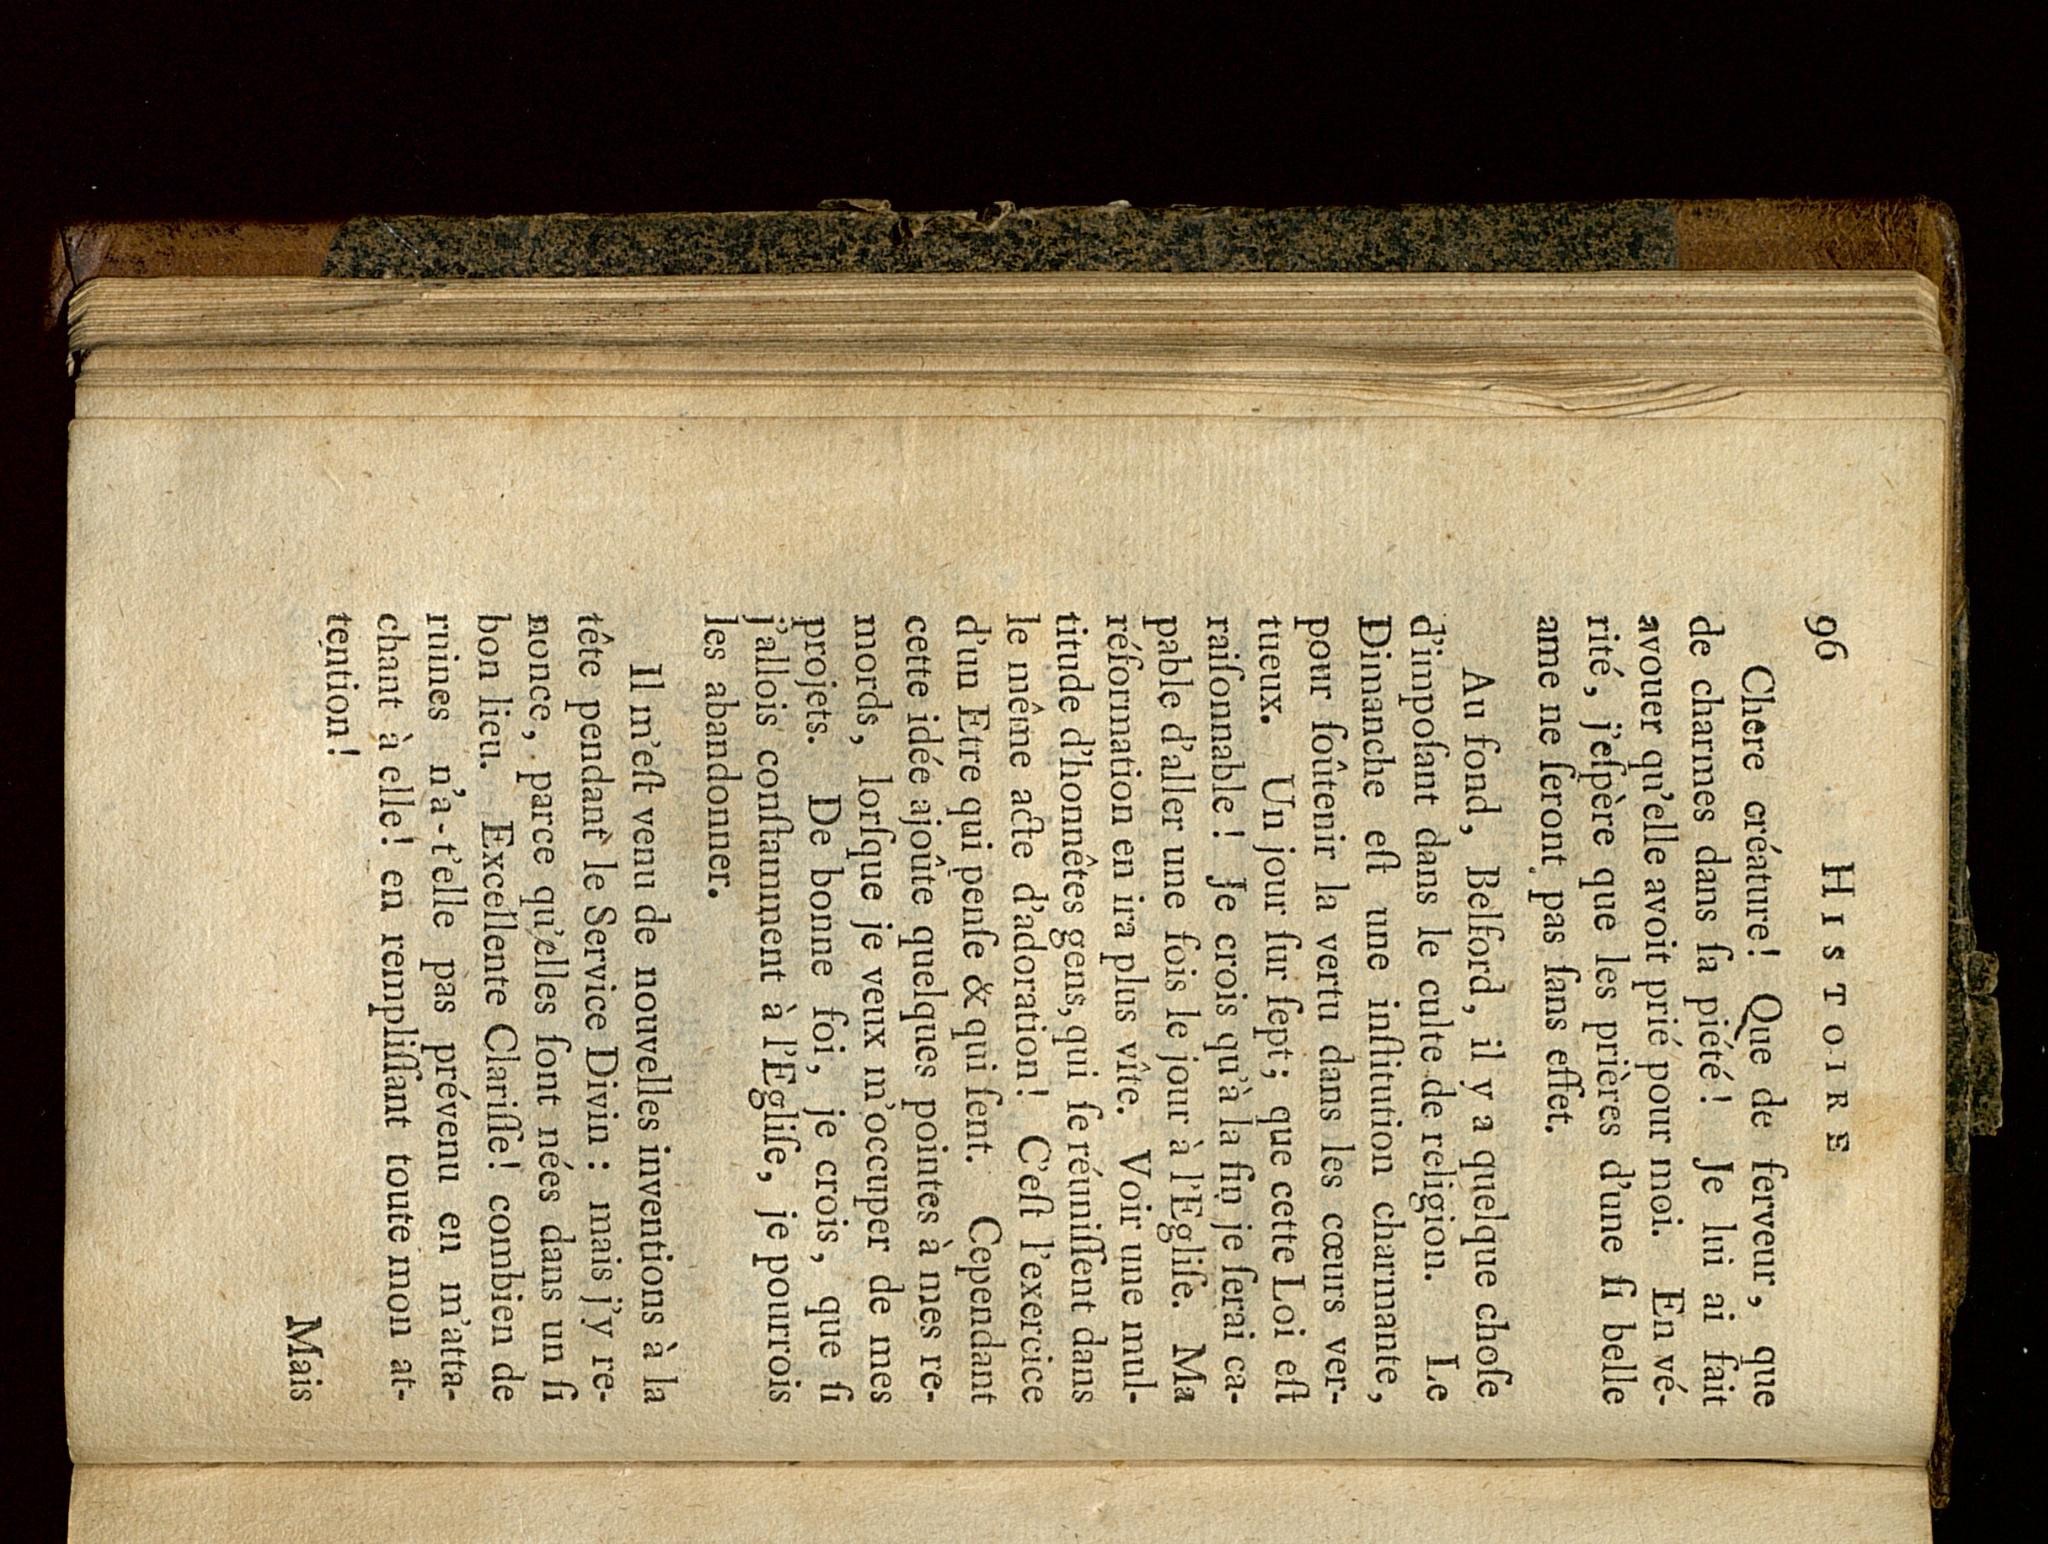 96 HISTOIRE
Chère créature! Que de ferveur, que
de charmes dans ſa piété! Je lui ai fait
avouer qu'elle avoit prié pour moi. En vé-
rité, j'eſpère que les prières d'une ſi belle
ame ne ſeront pas ſans effet.
Au fond, Belford, il y a quelque choſe
d'impoſant dans le culte de religion. Le
Dimanche eſt une inſtitution charmante,
pour ſoûtenir la vertu dans les cœurs ver-
tueux. Un jour ſur ſept; que cette Loi eſt
raiſonnable! Je crois qu'à la fin je ſerai ca-
pable d'aller une fois le jour à l'Egliſe. Ma
réformation en ira plus vîte. Voir une mul-
titude d'honnêtes gens, qui ſe réuniſſent dans
le même acte d'adoration! C'eſt l'exercice
d'un Etre qui penſe & qui ſent. Cependant
cette idée ajoûte quelques pointes à mes re-
mords, lorſque je veux m'occuper de mes
projets. De bonne foi, je crois, que ſi
j'allois conſtamment à l'Egliſe, je pourrois
les abandonner.
Il m'eſt venu de nouvelles inventions à la
tête pendant le Service Divin: mais j'y re-
nonce, parce qu'elles ſont nées dans un ſi
bon lieu. Excellente Clariſſe! combien de
ruines n'a-t'elle pas prévenu en m'atta-
chant à elle! en rempliſſant toute mon at-
tention!
Mais